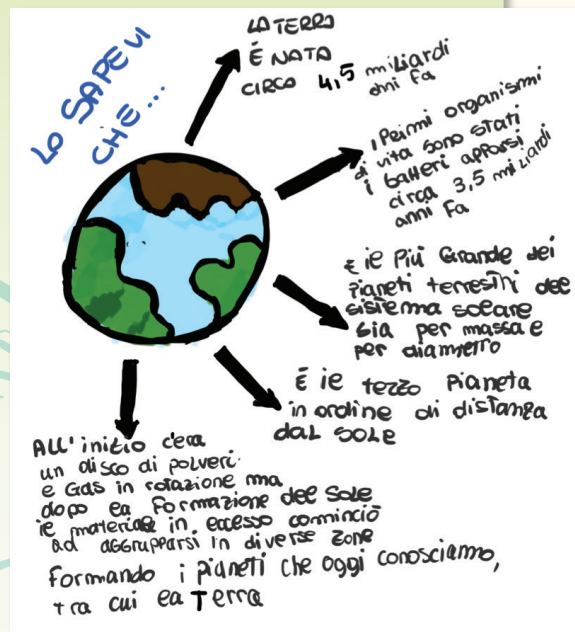 LO SAPEVI
CHE...
LA TERRA
È NATA
CIRCA 4,5 miliardi
anni fa
I Primi organismi
di vita sono stati
i batteri apparsi
circa 3,5 miliardi
anni fa
È il più Grande dei
Pianeti terrestri del
sistema solare
sia per massa e
per diametro
È il terzo pianeta
in ordine di distanza
dal sole
ALL'inizio c'era
un disco di polveri
e Gas in rotazione ma
dopo la Formazione del Sole
il materiale in eccesso cominciò
ad aggrupparsi in diverse zone
Formando i pianeti che oggi conosciamo,
tra cui la Terra